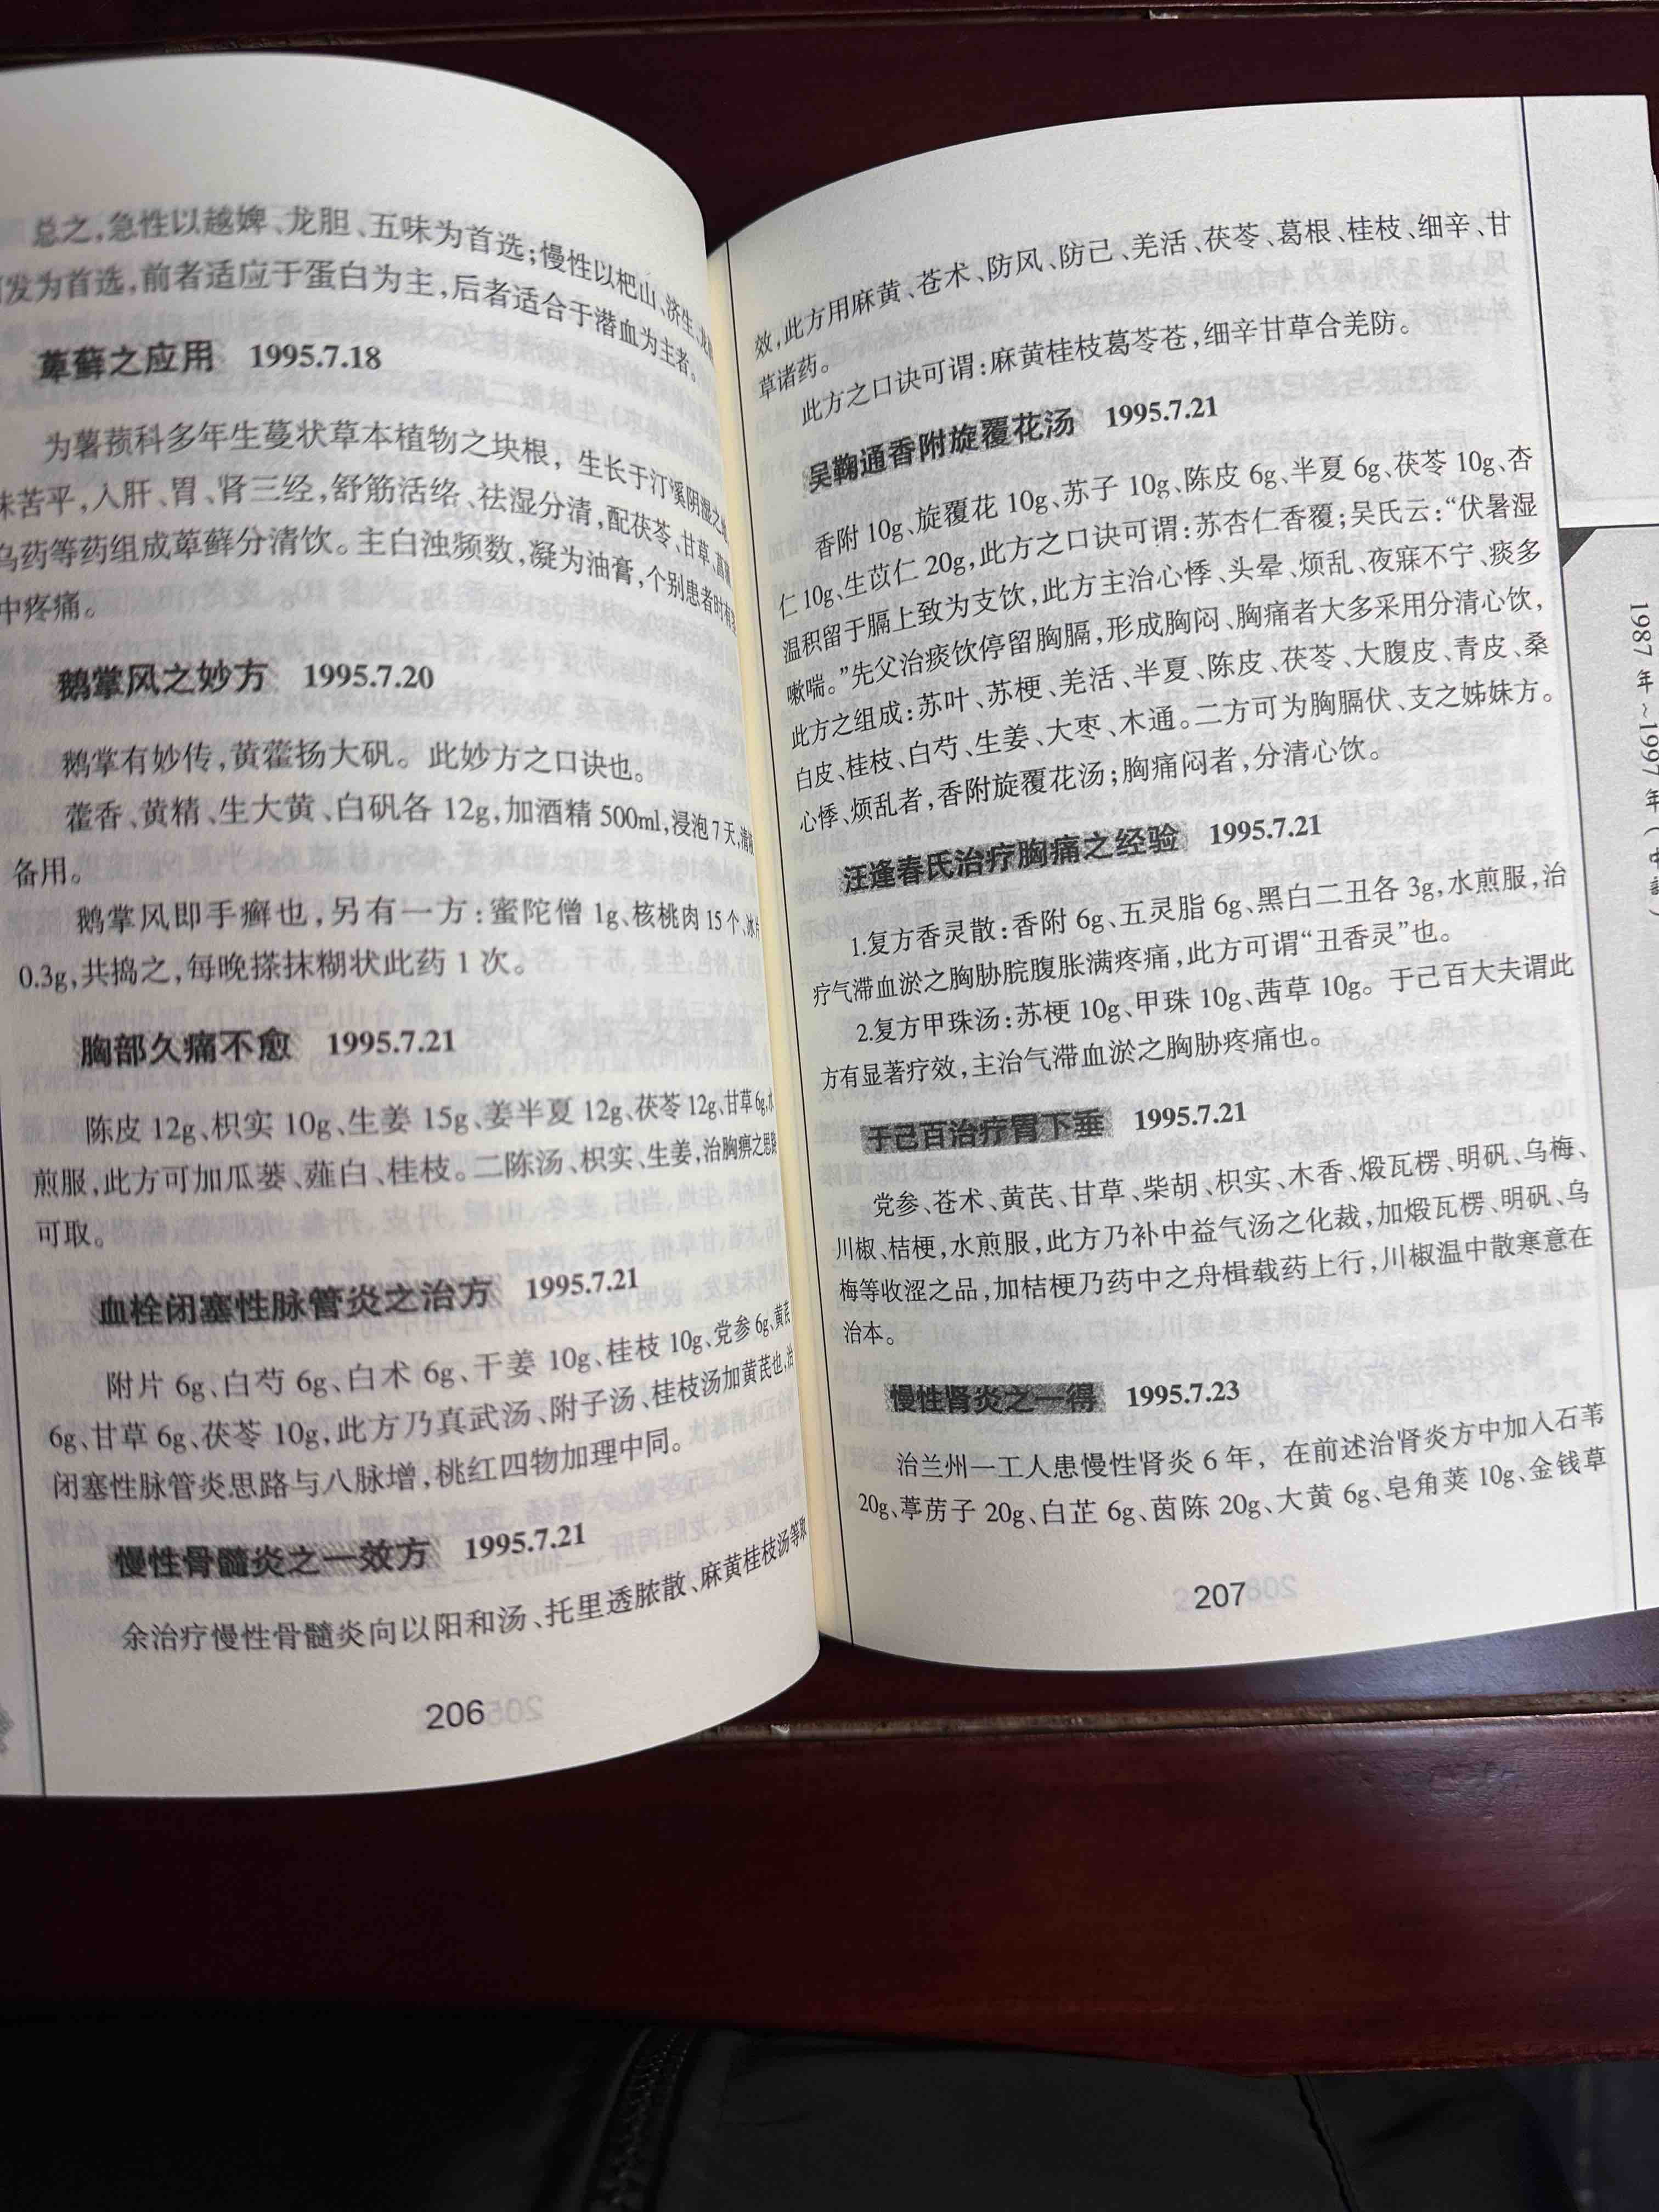 总之,急性以越婢、龙胆、五味为首选;慢性以杷山、济生、龙
发为首选,前者适应于蛋白为主,后者适合于潜血为主者。
萆薢之应用 1995.7.18
为薯蓣科多年生蔓状草本植物之块根,生长于汀溪阴湿之
味苦平,入肝、胃、肾三经,舒筋活络、祛湿分清,配茯苓、甘草、菖
乌药等药组成萆薢分清饮。主白浊频数,凝为油膏,个别患者时有
中疼痛。
鹅掌风之妙方 1995.7.20
鹅掌有妙传,黄藿扬大矾。此妙方之口诀也。
藿香、黄精、生大黄、白矾各 12g,加酒精 500ml,浸泡 7 天,清
备用。
鹅掌风即手癣也,另有一方:蜜陀僧 1g、核桃肉 15 个、冰片
0.3g,共捣之,每晚搽抹糊状此药 1 次。
胸部久痛不愈 1995.7.21
陈皮 12g、枳实 10g、生姜 15g、姜半夏 12g、茯苓 12g、甘草 6g,水
煎服,此方可加瓜蒌、薤白、桂枝。二陈汤、枳实、生姜,治胸痹之思路
可取。
血栓闭塞性脉管炎之治方 1995.7.21
附片 6g、白芍 6g、白术 6g、干姜 10g、桂枝 10g、党参 6g、黄芪
6g、甘草 6g、茯苓 10g,此方乃真武汤、附子汤、桂枝汤加黄芪也,治
闭塞性脉管炎思路与八脉增,桃红四物加理中同。
慢性骨髓炎之一效方 1995.7.21
余治疗慢性骨髓炎向以阳和汤、托里透脓散、麻黄桂枝汤等取
206
效,此方用麻黄、苍术、防风、防己、羌活、茯苓、葛根、桂枝、细辛、甘
草诸药。
此方之口诀可谓:麻黄桂枝葛苓苍,细辛甘草合羌防。
吴鞠通香附旋覆花汤 1995.7.21
香附 10g、旋覆花 10g、苏子 10g、陈皮 6g、半夏 6g、茯苓 10g、杏
仁 10g、生苡仁 20g,此方之口诀可谓:苏杏仁香覆;吴氏云:“伏暑湿
温积留于膈上致为支饮,此方主治心悸、头晕、烦乱、夜寐不宁、痰多
嗽喘。”先父治痰饮停留胸膈,形成胸闷、胸痛者大多采用分清心饮,
此方之组成:苏叶、苏梗、羌活、半夏、陈皮、茯苓、大腹皮、青皮、桑
白皮、桂枝、白芍、生姜、大枣、木通。二方可为胸膈伏、支之姊妹方。
心悸、烦乱者,香附旋覆花汤;胸痛闷者,分清心饮。
汪逢春氏治疗胸痛之经验 1995.7.21
1.复方香灵散:香附 6g、五灵脂 6g、黑白二丑各 3g,水煎服,治
疗气滞血淤之胸胁脘腹胀满疼痛,此方可谓“丑香灵”也。
2.复方甲珠汤:苏梗 10g、甲珠 10g、茜草 10g。于己百大夫谓此
方有显著疗效,主治气滞血淤之胸胁疼痛也。
于己百治疗胃下垂 1995.7.21
党参、苍术、黄芪、甘草、柴胡、枳实、木香、煅瓦楞、明矾、乌梅、
川椒、桔梗,水煎服,此方乃补中益气汤之化裁,加煅瓦楞、明矾、乌
梅等收涩之品,加桔梗乃药中之舟楫载药上行,川椒温中散寒意在
治本。
慢性肾炎之一得 1995.7.23
治兰州一工人患慢性肾炎 6 年,在前述治肾炎方中加入石苇
20g、葶苈子 20g、白芷 6g、茵陈 20g、大黄 6g、皂角荚 10g、金钱草
207
1987 年~1997 年(